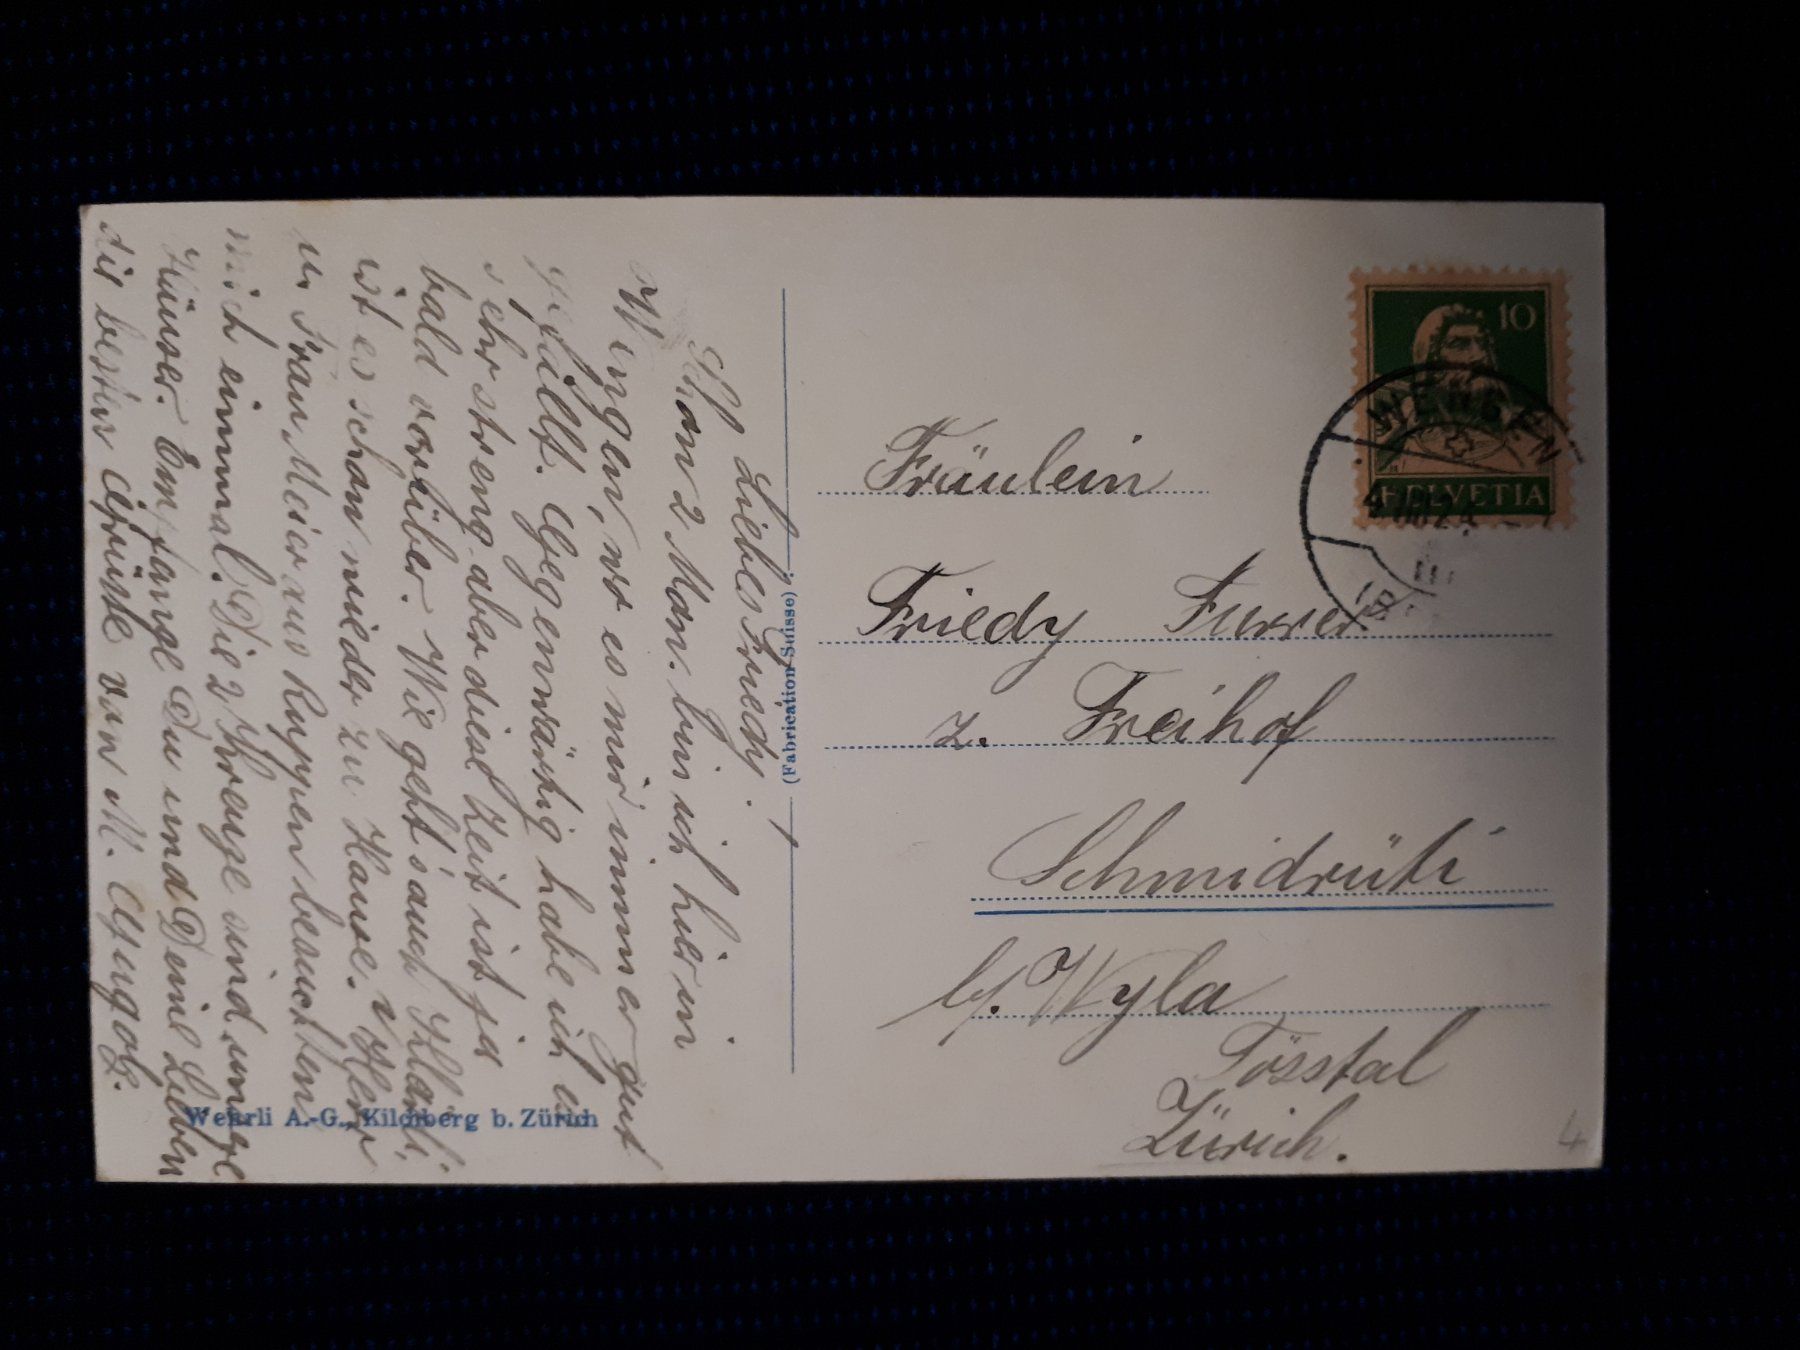 Liebes Friedy!
Schon 2 Mon. bin ich hier in
Wengen, wo es mir immer gut
gefällt. Gegenwärtig habe ich es
sehr streng aber diese Zeit ist ja
bald vorüber. Wie geht's auch Klärli,
ist es schon wieder zu Hause.
u. Frau Meier aus
mich einmal. Die 2
Häuser. Empfange Du und Deine Lieben
die besten Grüsse von M. Gugolz.
(Fabrication Suisse)
Wehrli A.-G., Kilchberg b. Zürich
10
HELVETIA
WENGEN
Fräulein
Friedy Furrer
z. Freihof
Schmidrüti
b/. Wyla
Tösstal
Zürich.
4